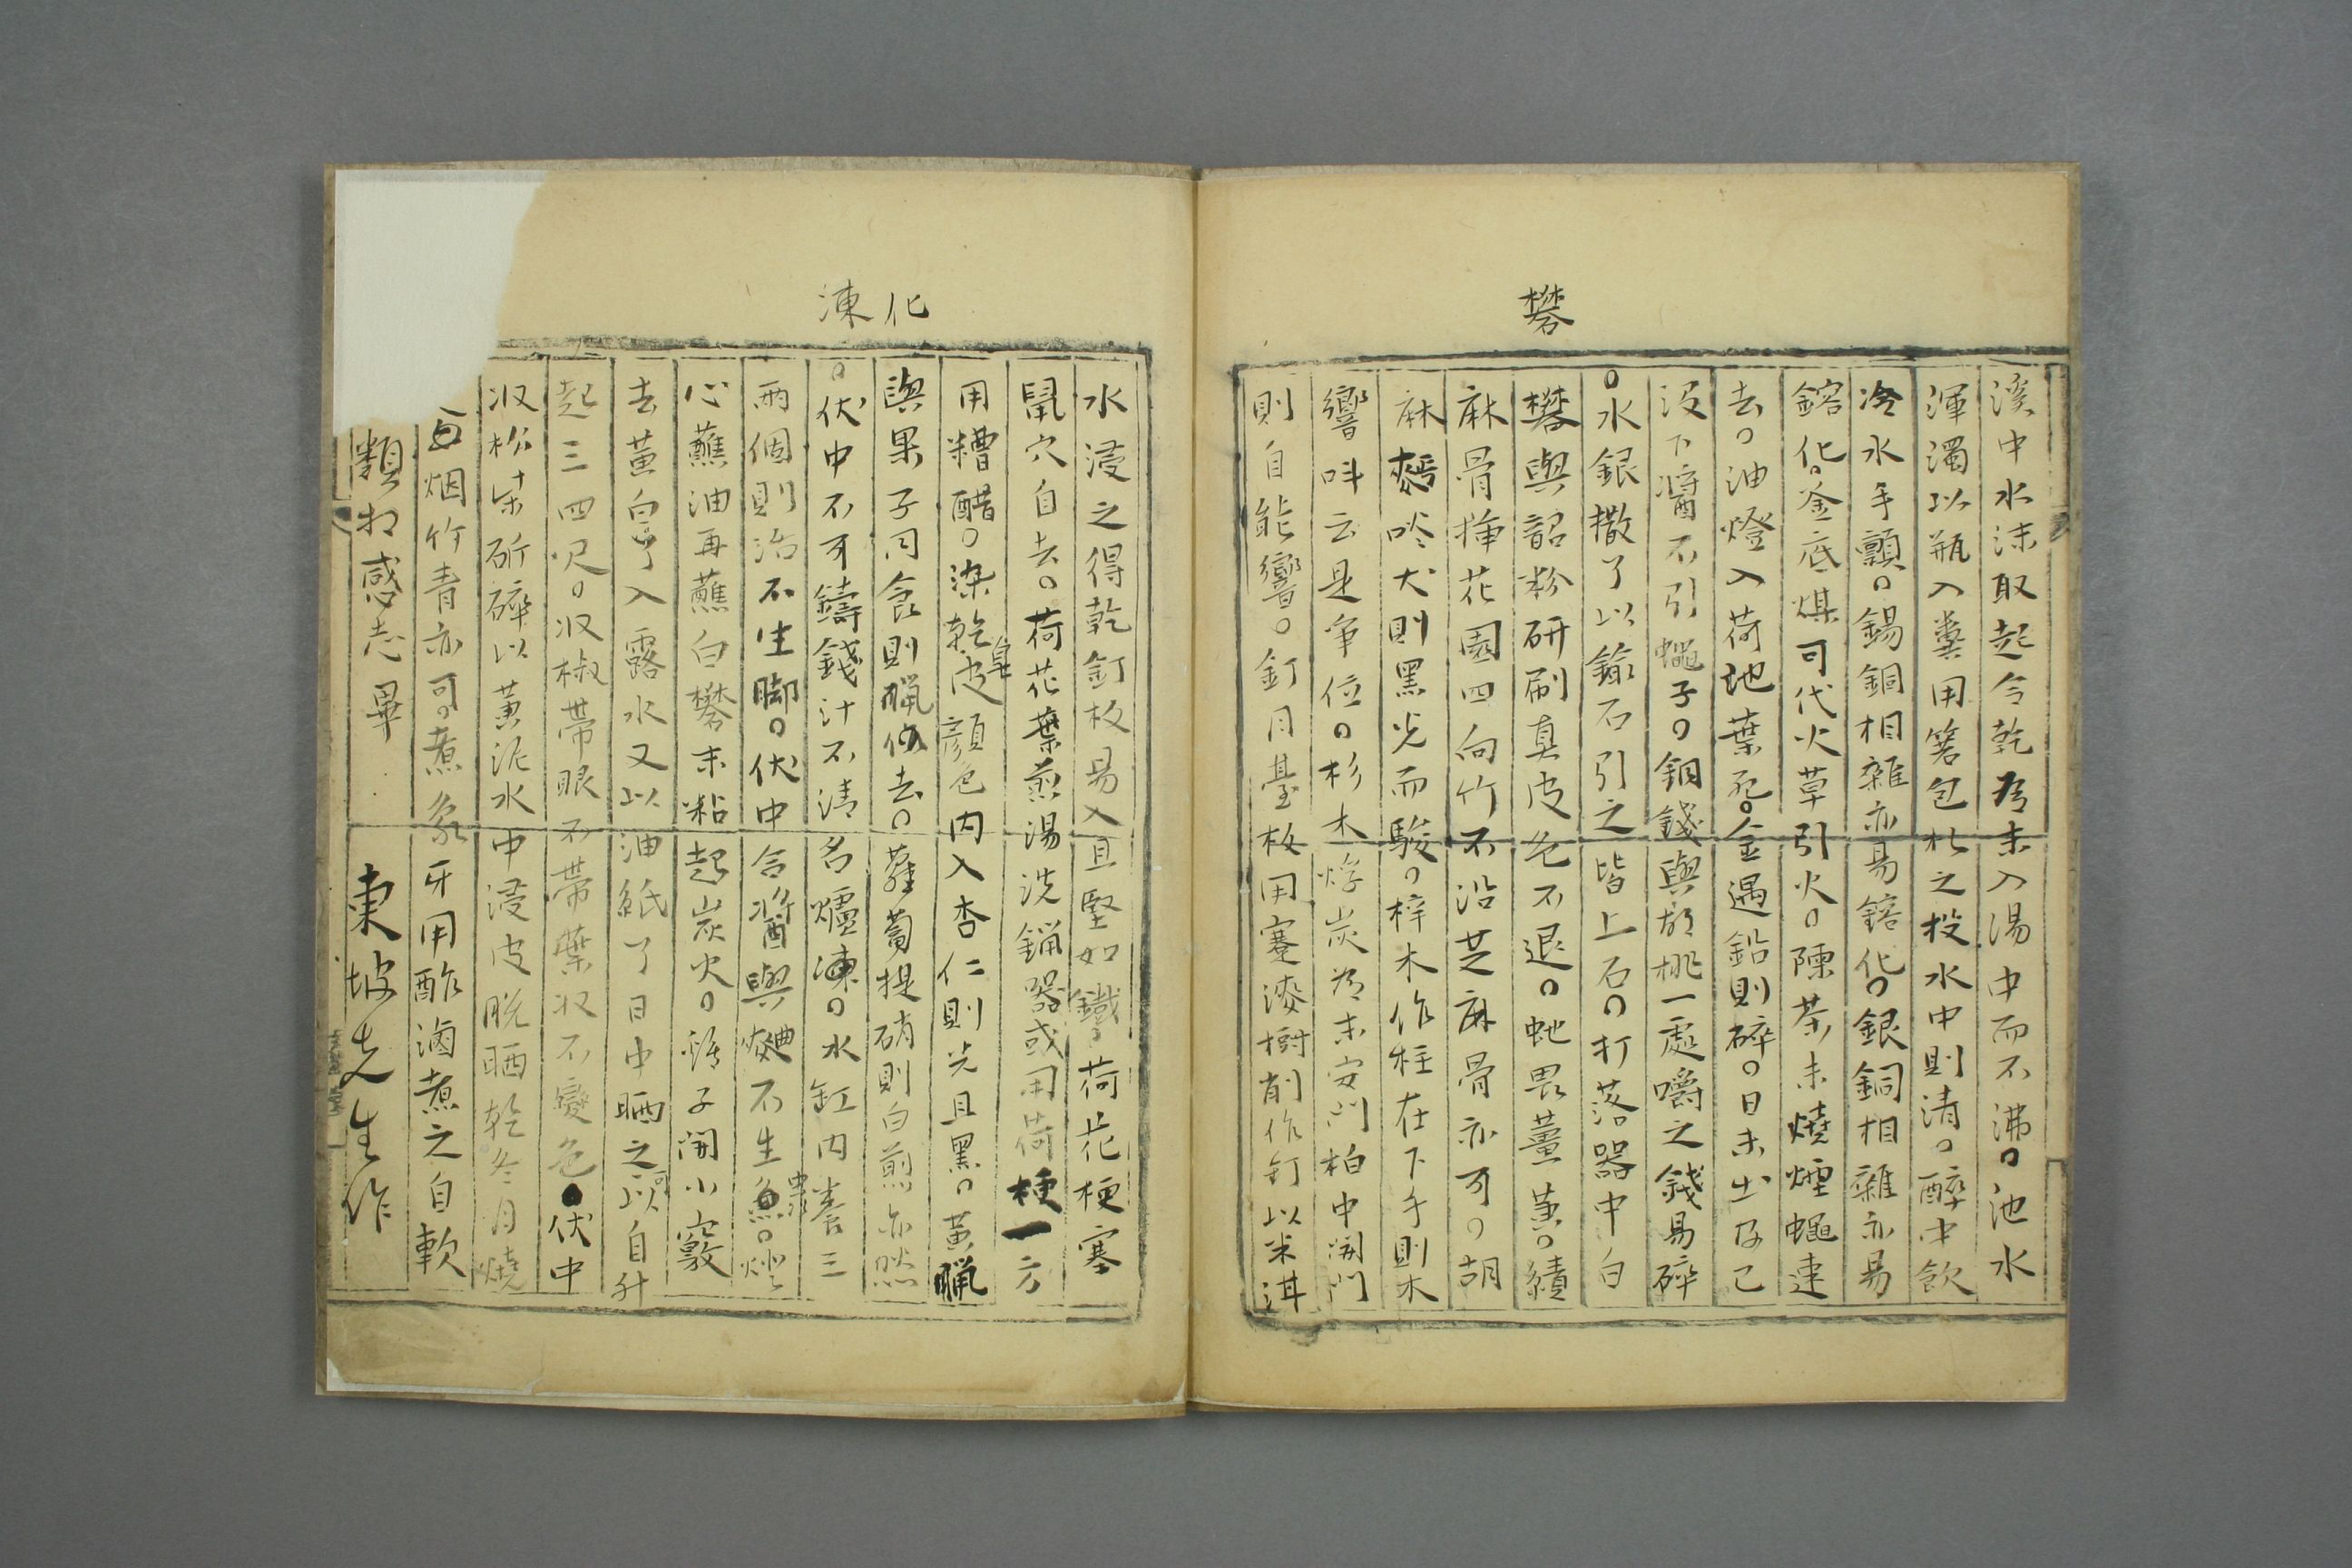 礬
溪中水沫取起令乾為末入湯中而不沸○池水
渾濁以瓶入糞用箬包札之投水中則清○醉中飲
冷水手顫○錫銅相雜亦易鎔化○銀銅相雜亦易
鎔化○釜底煤可代火草引火○陳茶末燒煙蠅速
去○油燈入荷地葉死○金遇鉛則碎○日未出及已
沒下醬不引蠅子○銅錢與胡桃一處嚼之錢易碎
○水銀撒了以鍮石引之皆上石○打落器中白
礬與韶粉研刷真皮色不退○蛇畏薑黃○績
麻骨揷花園四向竹不沿芝麻骨亦可○胡
麻吟犬則黑光而駿○梓木作柱在下手則木
響叫云是爭位○杉木烰炭為末安門柏中開門
則自能響○釘月臺板用蹇漆樹削作釘以米泔
化
凍
水浸之得乾釘板易入且堅如鐵荷花梗塞
鼠穴自去○荷花葉煎湯洗鑞器或用荷梗一方
用糟醋○染乾皂皮顏色內入杏仁則光且黑○黃蠟
與果子同食則蠟化去○蘿蔔提硝則白煎亦然
○伏中不可鑄錢汁不清名爐凍○水缸內養三
兩個則治不生腳○伏中合醬與麯不生虫
心蘸油再蘸白礬末粘起炭火○雞子開小竅
去黃白了入露水又以油紙了日中晒之可以自升
起三四尺○收椒帶眼不帶葉收不變色●伏中
收松柴斫碎以黃泥水中浸皮脫晒乾冬月燒
烟竹青亦可○煮象牙用酢滷煮之自軟
類相感志畢 東坡先生作